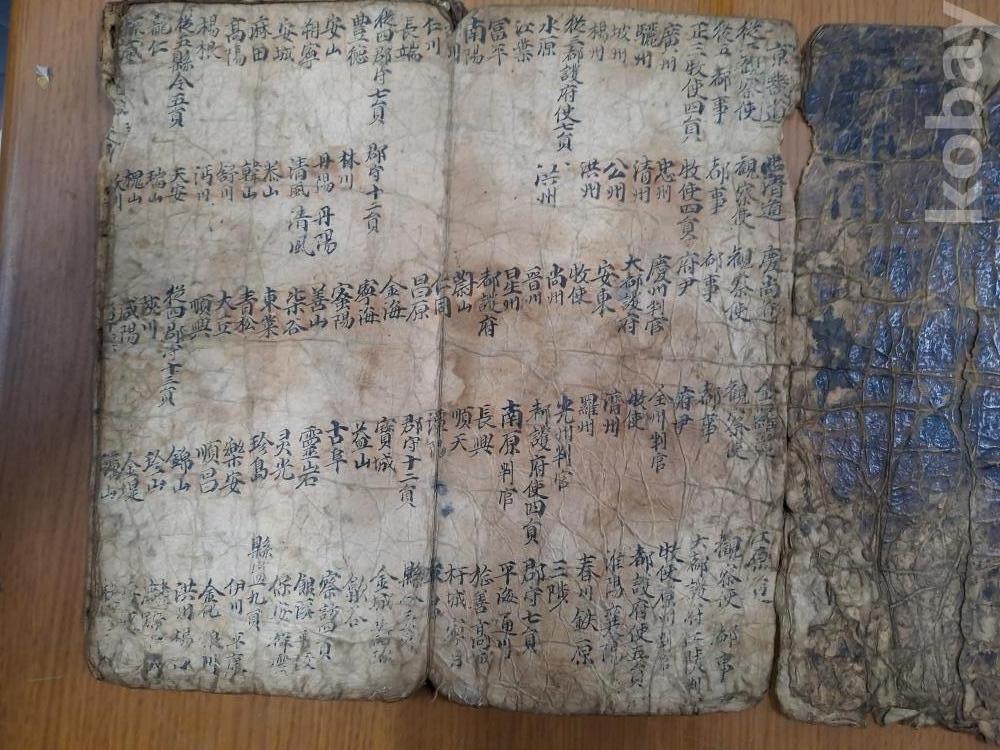 京畿道
從二觀察使
都事
正三牧使四員
廣州
驪州
坡州
楊州
從三都護府使七員
水原
江華
富平
南陽
仁川
長端
從四郡守七員
豊德
安山
朔寧
安城
麻田
高陽
楊根
從五縣令五員
龍仁
忠清道
觀察使
都事
牧使四員
忠州
清州
公州
洪州
洪州
郡守十二員
林川
丹陽 丹陽
清風 清風
韓山
舒川
沔川
天安
瑞山
槐山
沃川
慶尚道
觀察使
都事
府尹
慶州判官
大都護府
安東
牧使
尚州
晋州
星州
都護府
蔚山
仁同
昌原
金海
寧海
密陽
善山
柒谷
東萊
青松
大丘
順興
從四郡守十三員
陜川
咸陽
全羅道
觀察使
都事
府尹
全州判官
牧使
濟州
羅州
光州判官
都護府使四員
南原判官
長興
順天
潭陽
郡守十二員
寶城
益山
古阜
靈岩
灵光
珍島
樂安
順昌
錦山
珍山
金堤
江原道
觀察使 都事
大都護府江陵判
牧使原州判官
都護府使五員
淮陽 襄陽
春川 鉄原
三陟
郡守七員
平海 通川
旌善 高城
杆城
金城
歙谷
察訪
保安 祥雲
縣監九員
伊川 平康
金化 狼川
洪川 楊口
kobay